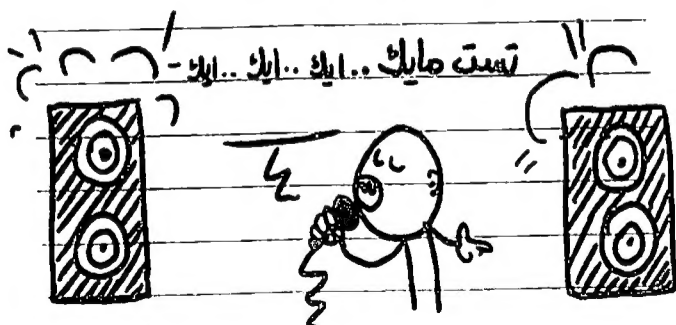 - تست مايك .. ايك .. ايك .. ايك -